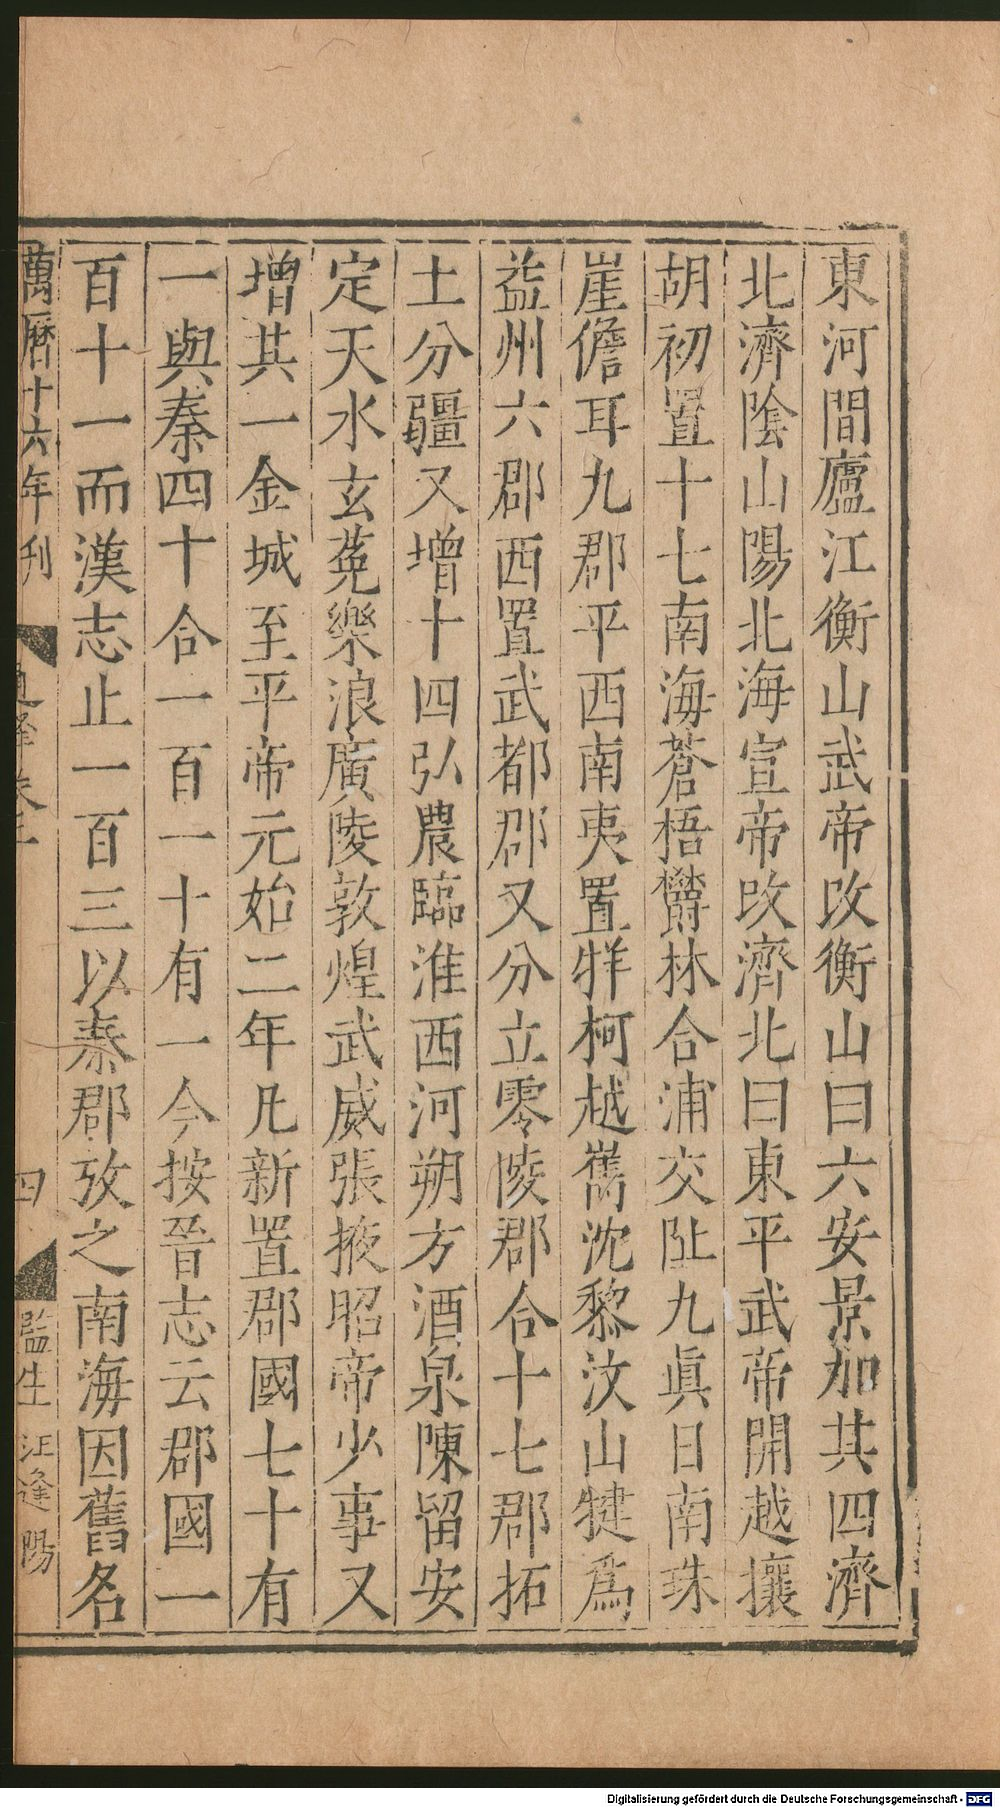 東河間廬江衡山武帝改衡山曰六安景加其四濟
北濟陰山陽北海宣帝改濟北曰東平武帝開越攘
胡初置十七南海蒼梧欝林合浦交阯九眞日南珠
崖儋耳九郡平西南夷置牂柯越嶲沈黎汶山犍爲
益州六郡西置武都郡又分立零陵郡合十七郡拓
土分疆又增十四弘農臨淮西河朔方酒泉陳留安
定天水玄菟樂浪廣陵敦煌武威張掖昭帝少事又
增其一金城至平帝元始二年凡新置郡國七十有
一與秦四十合一百一十有一今按晉志云郡國一
百十一而漢志止一百三以秦郡攷之南海因舊名
萬曆十六年刊
四
監生汪逢陽
Digitalisierung gefördert durch die Deutsche Forschungsgemeinschaft - DFG